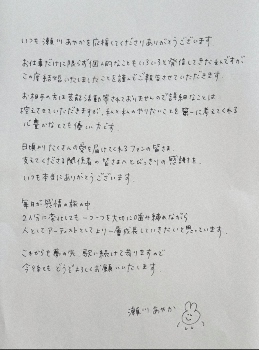 いつも瀬川あやかを応援してくださりありがとうございます
お仕事だけに限らず個人的なこともいろいろと発信してきた私ですが
この度結婚いたしましたことを謹んでご報告させていただきます。
お相手の方は芸能活動等されておりませんので詳細なことは
控えさせていただきますが、私と私のやりたいことを第一に考えてくれる
心豊かなとても優しい方です
日頃よりたくさんの愛を届けてくれるファンの皆さま
支えてくださる関係者の皆さまへとびっきりの感謝を。
いつも本当にありがとうございます。
毎日が感情の旅の中
2人分に変化しても一つ一つを大切に噛み締めながら
人としてアーティストとしてより一層成長していきたいと思っています。
これからも暮らし、歌い続けて参りますので
今後ともどうぞよろしくお願いいたします
瀬川あやか